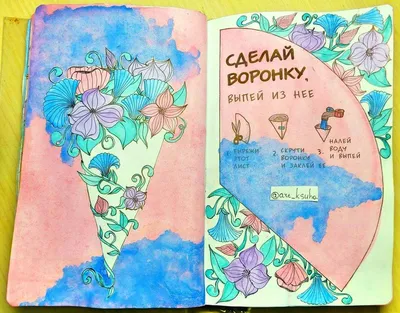 СДЕЛАЙ
ВОРОНКУ,
ВЫПЕЙ ИЗ НЕЕ
1. ВЫРЕЖИ
ЭТОТ
ЛИСТ
2. СКРУТИ
ВОРОНКУ
И ЗАКЛЕЙ ЕЕ
3. НАЛЕЙ
ВОДУ
И ВЫПЕЙ